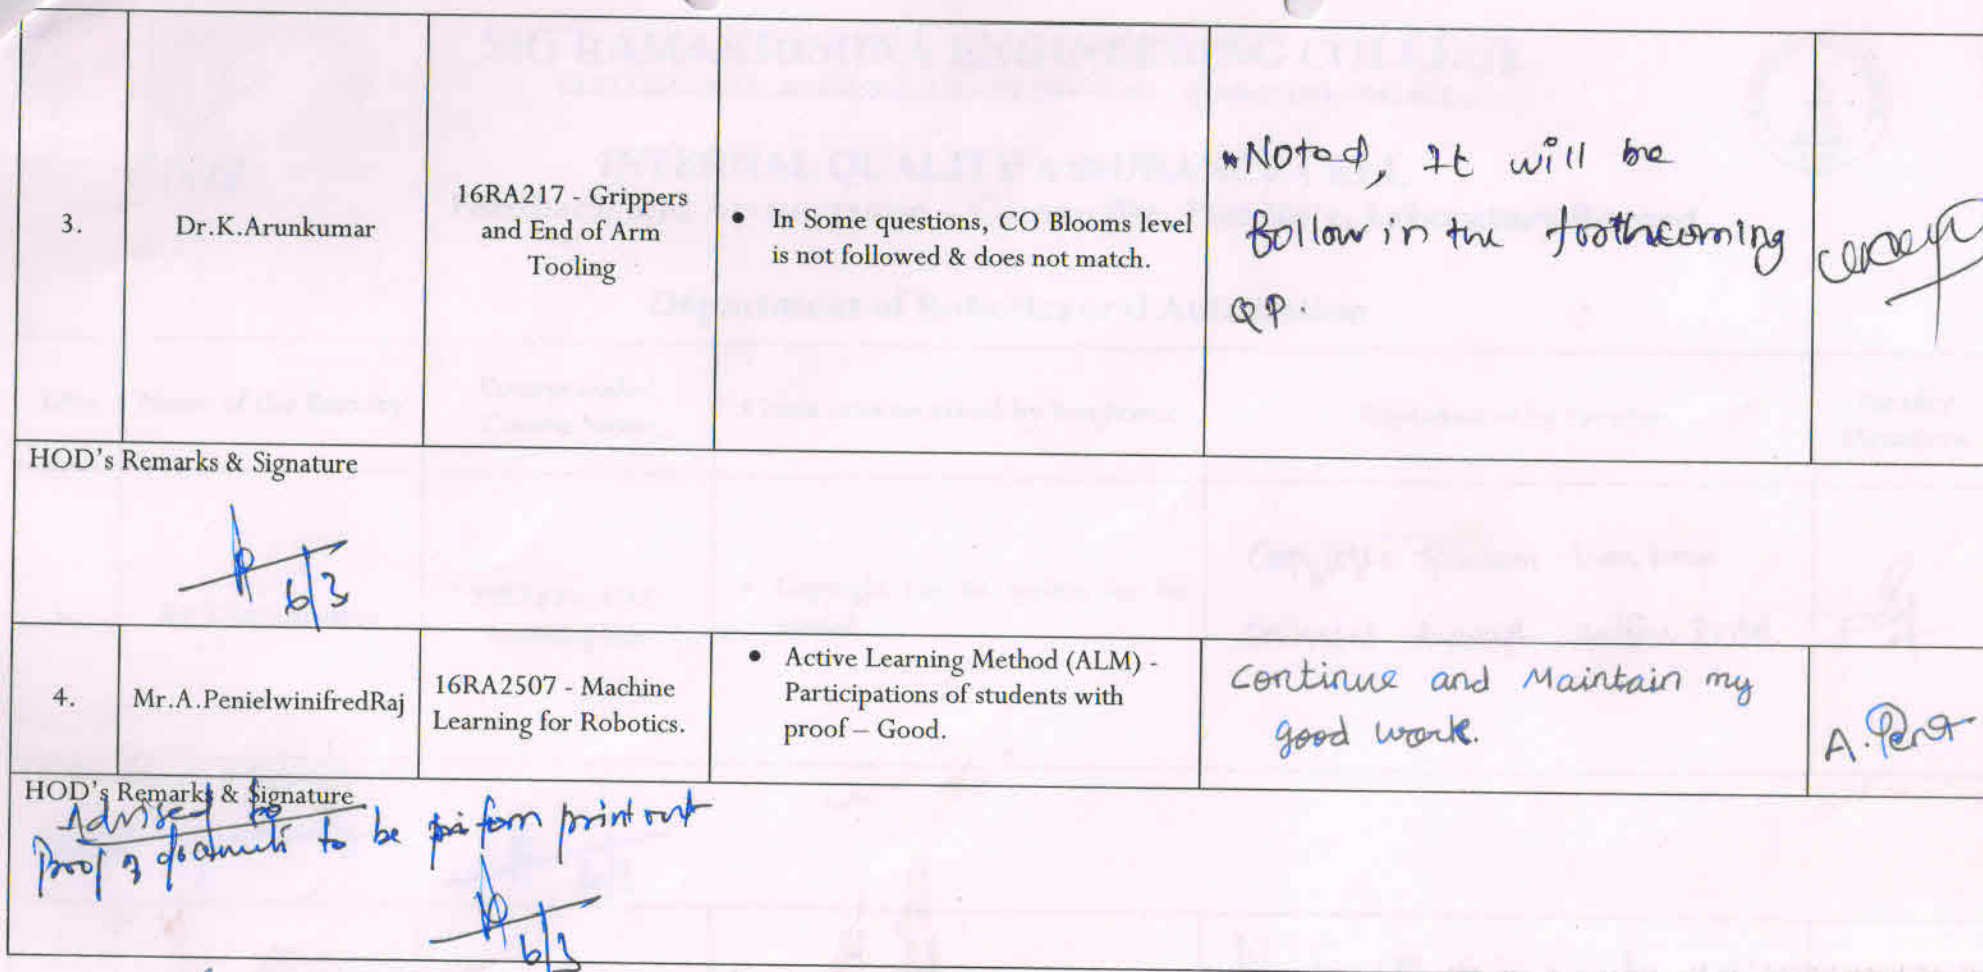 3.
Dr.K.Arunkumar
16RA217 - Grippers
and End of Arm
Tooling
• In Some questions, CO Blooms level
is not followed & does not match.
Noted, It will be
follow in the forthcoming
QP.
HOD's Remarks & Signature
6/3
4.
Mr.A.PenielwinifredRaj
16RA2507 - Machine
Learning for Robotics.
• Active Learning Method (ALM) -
Participations of students with
proof – Good.
Continue and Maintain my
good work.
HOD's Remarks & Signature
Advised to
Proof of to be print out
6/3